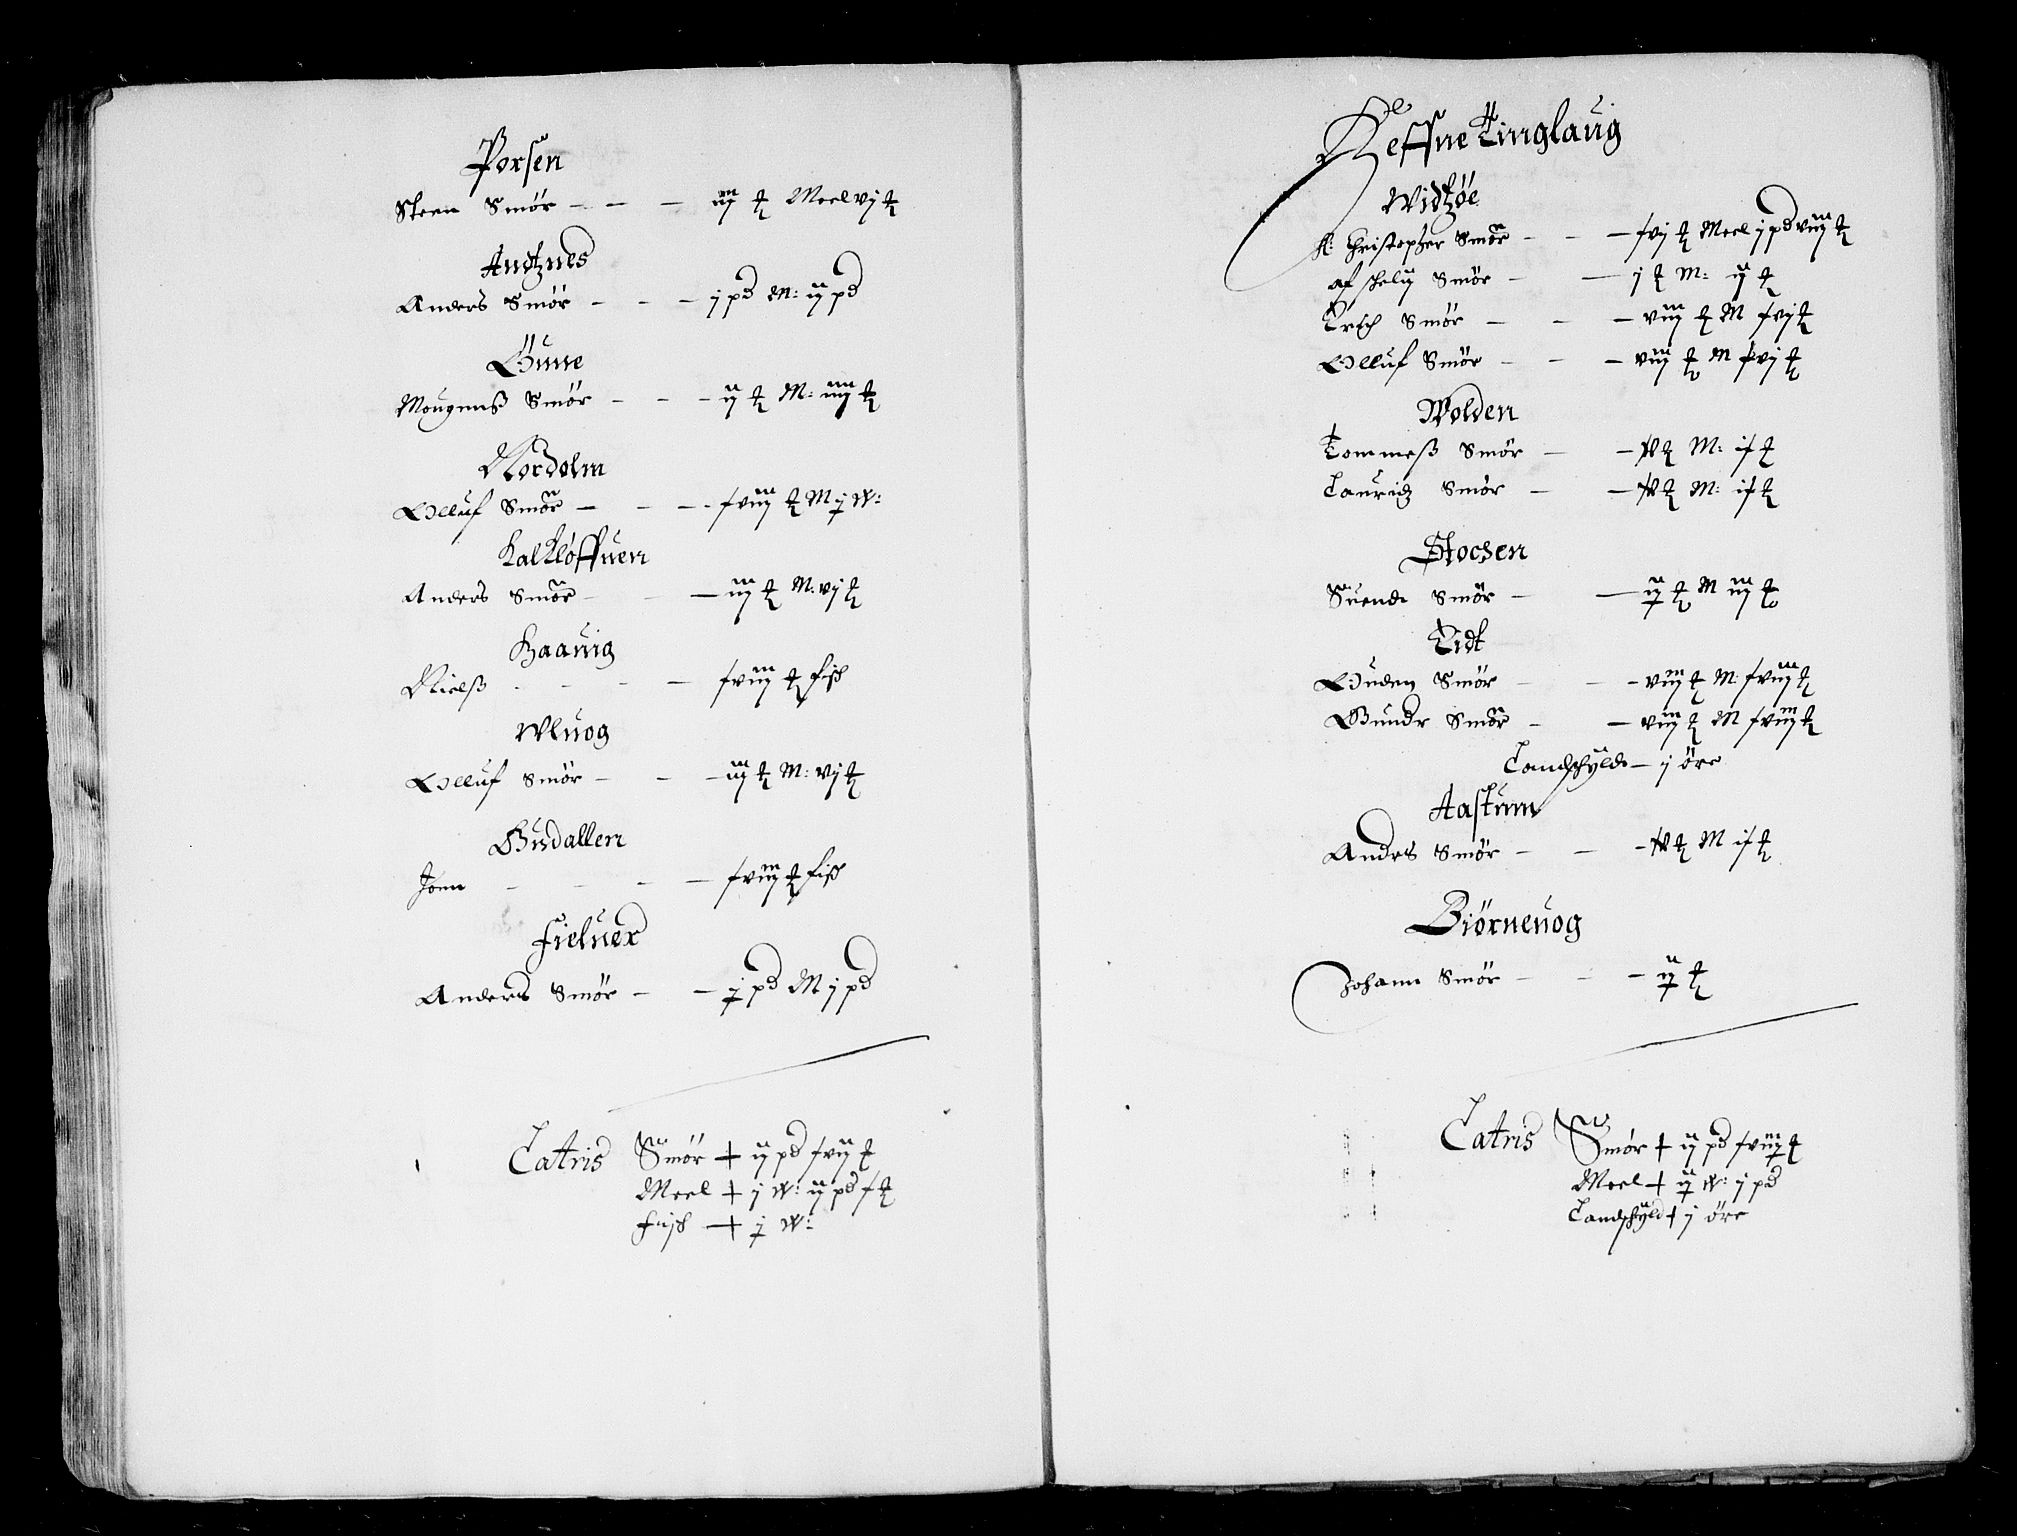 Porsen
Steen Smör - - - iij ℔ Meel vj ℔
Andtznes
Anders Smör - - - j pd M: ij pd
Gune
Mougenß Smör - - - ij ℔ M: iiij ℔
Nordolm
Olluf Smör - - - xviij ℔ M j W:
Kalkløffuen
Anders Smör - - iij ℔ M: vj ℔
Haauig
Nielß - - - - xviij ℔ fisk
Wluog
Olluf Smör - - - iij ℔ M: vj ℔
Gusdallen
Jonn - - - - xviij ℔ fisk
Fieluer
Anders Smör - - j pd M j pd
Latris Smör + ij pd xvij ℔
Meel + j W: ij pd x ℔
Fisch + j W:
Heffne Tinglaug
Widtzöe
H: Christopher Smör - - - xvj ℔ Meel j pd viij ℔
Smör - - j ℔ M: ij ℔
Erich Smör - - - viij ℔ M xvj ℔
Olluf Smör - - - viij ℔ M xvj ℔
Wolden
Tommeß Smör - - ℔ M: ix ℔
Lauridz Smör - - ℔ M: ix ℔
Stocsen
Suend Smör - - ij ℔ M iij ℔
Tidt
Guden Smör - - - viij ℔ M: xviij ℔
Smör - - viij ℔ M xviij ℔
Landschyld - j öre
Aastum
Andrs Smör - - - ℔ M ix ℔
Biörneuog
Johann Smör - - - ij ℔
Latris Smör + ij pd xviij ℔
Meel + ij W: j pd
Landschyld + j öre